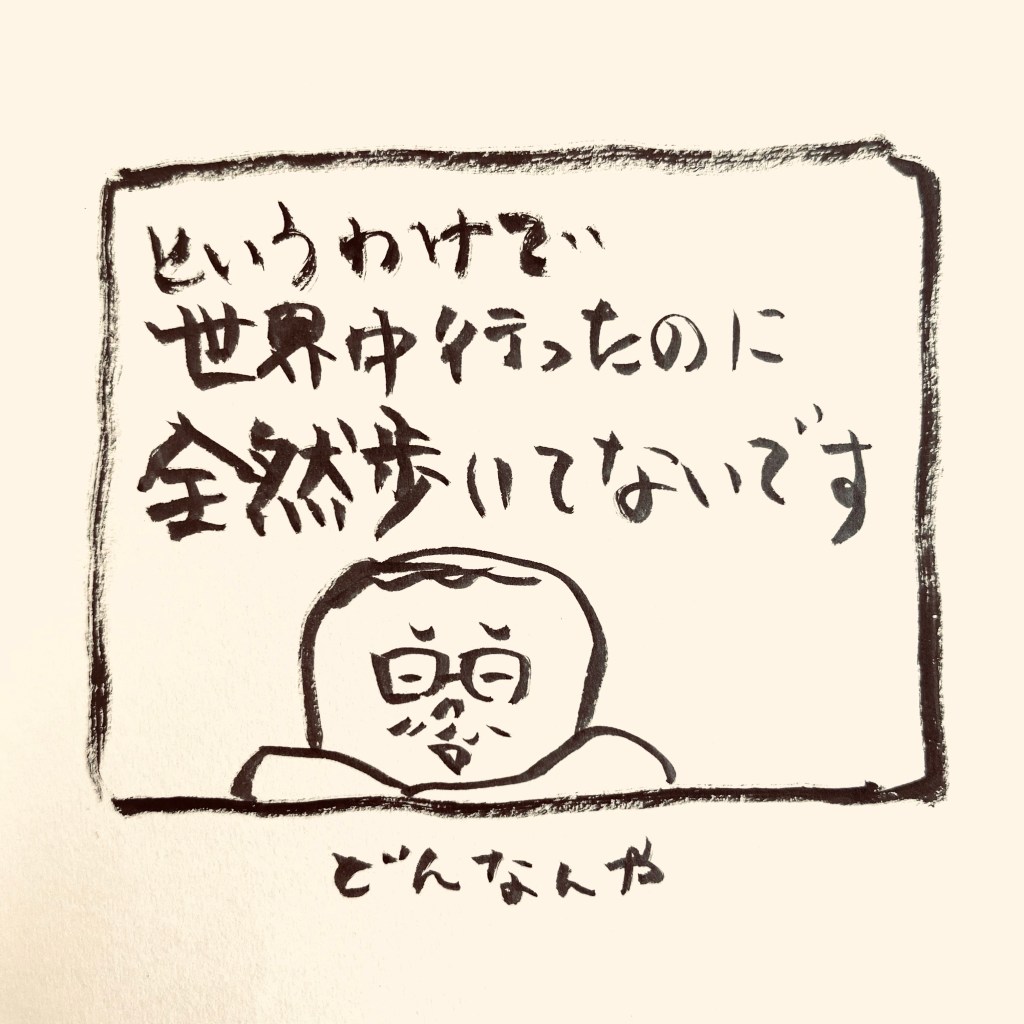 というわけで
世界中行ったのに
全然歩いてないです
どんなんや